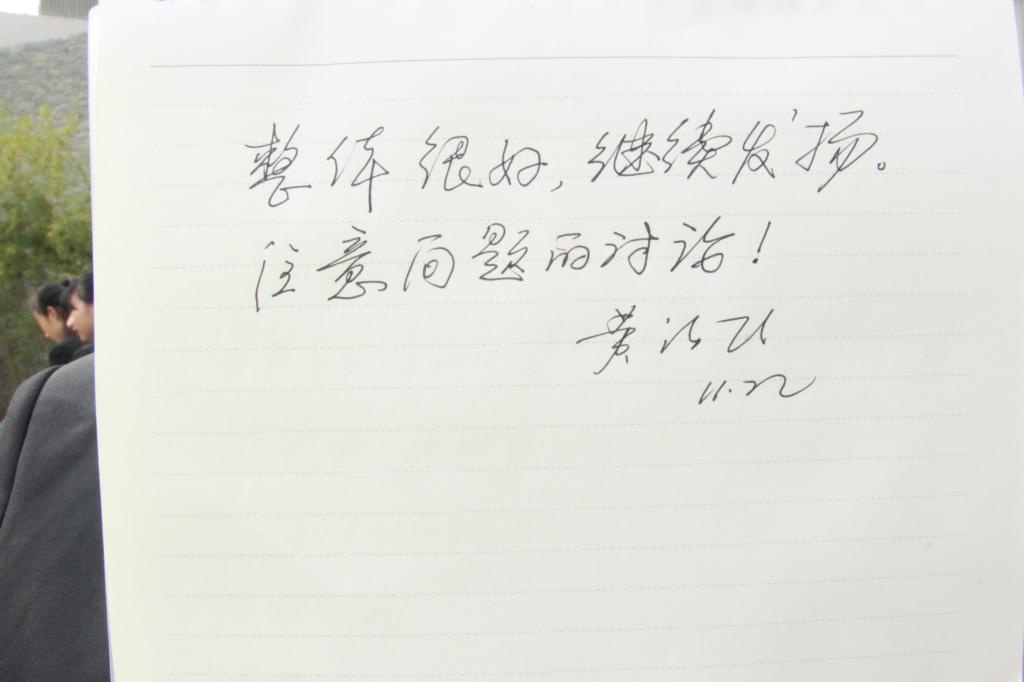 整体很好,继续发扬。
注意问题的讨论!
黄
11.22